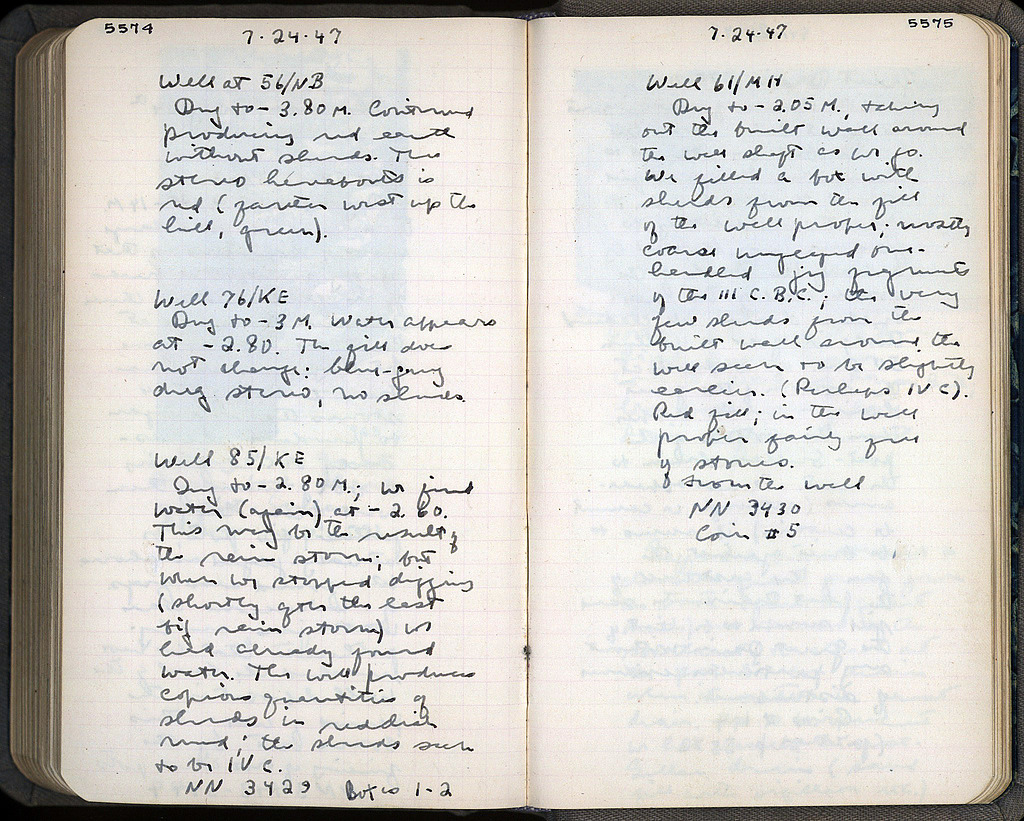 5574
7-24-47
Well at 56/NB
Dug to -3.80 M. Continued
producing red earth
without sherds. The
stereo hereabouts is
red (farther west up the
hill, green).
Well 76/KE
Dug to -3 M. Water appears
at -2.80. The fill does
not change: blue-gray
dug stereo, no sherds.
Well 85/KE
Dug to -2.80 M.; we find
water (again) at -2.60.
This may be the result of
the rain storm; but
when we stopped digging
(shortly after the last
big rain storm) we
had already found
water. The well produces
copious quantities of
sherds in reddish
mud; the sherds seem
to be IV C.
NN 3429 Boxes 1-2
5575
7-24-47
Well 61/MH
Dug to -2.05 M., taking
out the built wall around
the well shaft as we go.
We filled a box with
sherds from the fill
of the well proper; mostly
coarse unglazed one-
handled jug fragments
of the III C. B.C.; the very
few sherds from the
built wall around the
well seem to be slightly
earlier. (Perhaps IV C).
Red fill; in the well
proper fairly free
of stones.
From the well
NN 3430
Coin #5